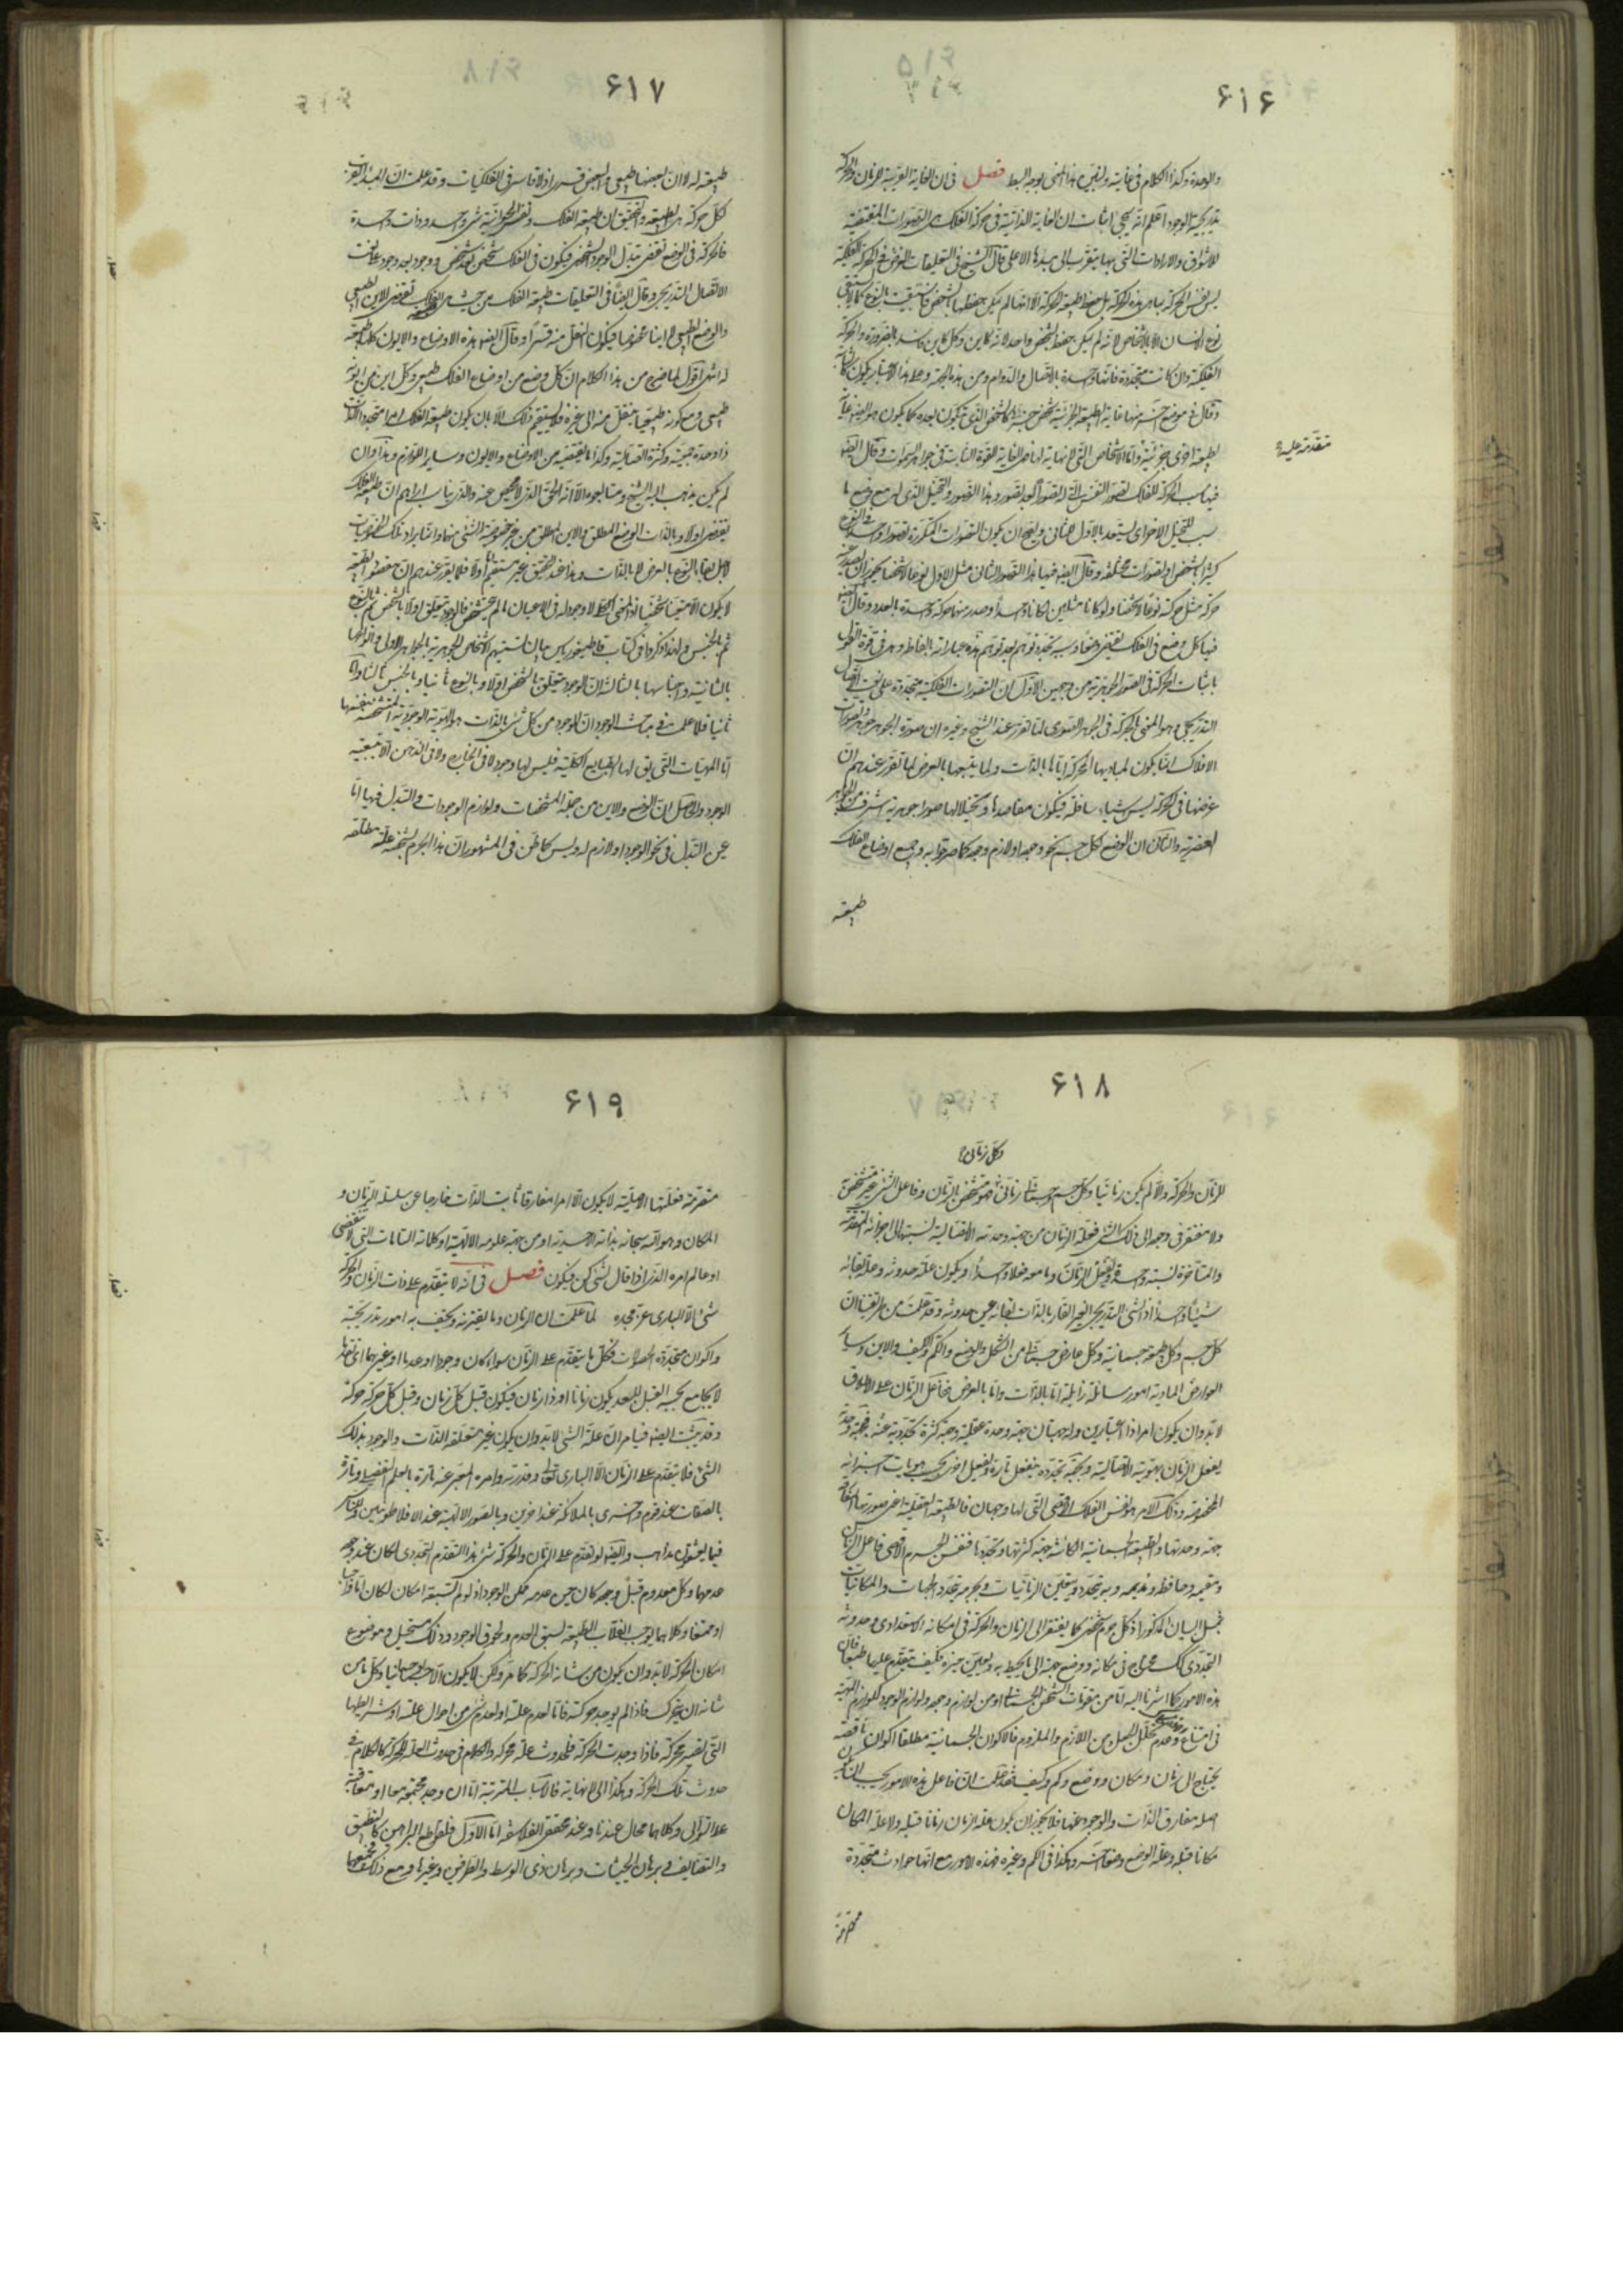 ۶۱۶
والوحدة وكذا الكلام فى غايته ولنبين هذا المعنى بوجه ابسط فصل فى ان الغاية القريبة للزمان والحركة
تدريجية الوجود اعلم انه يجئ اثبات ان الغاية الذاتية فى حركة الفلك هى التصورات المقتضية
للاشواق والارادات التى بها يتقرب الى مبدئها الاعلى قال الشيخ فى التعليقات الغرض فى الحركة الفلكية
ليس نفس الحركة بما هى هذه الحركة بل حفظ طبيعة الحركة الا انها لم يمكن حفظها بالشخص فاستبقيت بالنوع كما لا يستبقى
نوع الانسان الا بالاشخاص لانه لم يمكن حفظه بشخص واحد لانه كاين وكل كاين فاسد بالضرورة والحركة
الفلكية وان كانت متجددة فانها واحدة بالاتصال والدوام ومن هذه الجهة وعلى هذا الاعتبار يكون كالثابتة
وقال فى موضع آخر منها غاية الطبيعة الجزئية شخص جزئى كالشخص الذى يكون بعده كما يكون هو ايضا غاية
لطبيعة اخرى جزئية واما الاشخاص التى لا نهاية لها فهى الغاية للقوة الثابتة فى جواهر السموات وقال ايضا
متقدمة عليه
فيها سبب الحركة للفلك تصور النفس التى له تصورا بعد تصور وهذا التصور والتخيل الذى له مع وضع ما
سبب للتخيل الاخر اى يستعد بالاول للثانى ويصح ان يكون التصورات المتكررة تصورا واحدا فى النوع
كثيرا بالشخص او تصورات مختلفة وقال ايضا فيها هذا التصور الثانى مثل الاول نوعا لا شخصا يجوز ان يصدر عنه
حركة مثل حركته نوعا لا شخصا ولو كانا مثلين لكانا واحدا وصدر منها حركة واحدة بالعدد وقال ايضا
فيها كل وضع فى الفلك يقتضى وضعا وسببه تجدد توهم بعد توهم هذه عباراته بالفاظه وهى فى قوة القول
باثبات الحركة فى الصور الجوهرية من وجهين الاول ان التصورات الفلكية متجددة على نعت الاتصال
التدريجى وهو المعنى بالحركة فى الجوهر الصورى لما تقرر عند الشيخ وغيره ان صورة الجوهر جوهر وتصورات
الافلاك انما يكون لمباديها المحركة اياها بالذات ولما يتبعها بالعرض لما تقرر عندهم ان
غرضها فى الحركة ليس شيئا سافلة فيكون مقاصدها وتخيلاتها صورا جوهرية اشرف من الجواهر
العنصرية والثانى ان الوضع لكل جسم نحو وجوده او لازم وجوده كما صرحوا به وجميع اوضاع الفلك
طبيعية
۶۱۷
طبيعية له لا ان بعضها طبيعى والبعض قسرى اذ لا قاسر فى الفلكيات وقد علمت ان المبدء القريب
لكل حركة هى الطبيعة والتحقيق ان طبيعة الفلك ونفسه الحيوانية شئ واحد وذات واحدة
فالحركة فى الوضع تقتضى تبدل الوجود الشخصى فيكون فى الفلك شخص بعد شخص ووجود بعد وجود على نعت
الاتصال التدريجى وقال ايضا فى التعليقات طبيعة الفلك من حيث هى طبيعة الفلك تقتضى الاين الطبيعى
والوضع الطبيعى لا اينا مخصوصا فيكون النقل منه قسرا وقال ايضا هذه الاوضاع والايون كلها طبيعية
له انتهى اقول لما ضح من هذا الكلام ان كل وضع من اوضاع الفلك طبيعى وكل اين من ايونه
طبيعى ومع كونه طبيعيا ينتقل منه الى غيره فلا يستقيم ذلك الا بان يكون طبيعة الفلك امرا متجدد الذات
ذا وحدة جمعية وكثرة اتصالية وكذا ما يقتضيه من الاوضاع والايون وساير اللوازم وهذا وان
لم يكن يذهب اليه الشيخ ومتابعوه الا انه الحق الذى لا محيص عنه والذى يناسب اراءهم ان طبيعة الفلك
يقتضى اولا وبالذات الوضع المطلق والاين المطلق من غير خصوصية لشئ منها وانما يراد تلك الخصوصيات
لاجل بقاء النوع بالعرض لا بالذات وهذا عند التحقيق غير مستقيم اما اولا فلما تقرر عندهم ان مقصود الطبيعة
لا يكون الا متعينا متشخصا اذ المعنى الكلى لا وجود له فى الاعيان ما لم يتشخص فالوجود يتعلق اولا بالشخص ثم بالنوع
ثم بالجنس ولهذا ذكروا فى كتاب قاطيغورياس ما لان تسميتهم الاشخاص الجوهرية بالجواهر الاولى وانواعها
بالثانية واجناسها بالثالثة ان الوجود يتعلق بالشخص اولا وبالنوع ثانيا وبالجنس ثالثا واما
ثانيا فلما علمت فى مباحث الوجود ان الموجود من كل شئ بالذات هو الهوية الوجودية المتشخصة بنفسها
اما المهيات التى يق لها الطبايع الكلية فليس لها وجود لا فى الخارج ولا فى الذهن الا بتبعية
الوجود والحاصل ان الوضع والاين من جملة المشخصات ولوازم الوجودات والتبدل فيها اما
عين التبدل فى نحو الوجود او لازم له وليس كما ظن فى المشهور ان هذا الجرم بشخصه علة مطلقة
۶۱۸
وكل زمانى
للزمان والحركة والا لم يكن زمانيا وكل جسم وجسمانى زمانى فهو متشخص بالزمان وفاعل الشئ غير متشخص به
ولا مفتقر فى وجوده الى ذلك الشئ فعلة الزمان من جهة وحدته الاتصالية نسبتها الى اجزائه المتقدمة
والمتأخرة نسبة واحدة ويفعل الزمان وما معه فعلا واحدا ويكون علة حدوثه وعلة بقائه
شيئا واحدا اذ الشئ التدريجى الغير القار بالذات بقائه عين حدوثه وقد علمت من طريقتنا ان
كل جسم وكل طبيعة جسمانية وكل عارض جسمانى من الشكل والوضع والكم والكيف والاين وساير
العوارض المادية امور سائلة زايلة اما بالذات واما بالعرض ففاعل الزمان على الاطلاق
لابد وان يكون امرا ذا اعتبارين وله جهتان جهة وحدة عقلية وجهة كثرة تجددية عنه فبجهة وحدة
يفعل الزمان بهويته الاتصالية وبجهة تجدده ينفعل تارة ويفعل اخرى بحسب هويات اجزائه
المخصوصة وذلك الامر هو نفس الفلك الاقصى التى لها وجهان فالطبيعة العقلية اعنى صورتها الكلية
جهة وحدتها والطبيعة الجسمانية الكائنة جهة كثرتها وتجددها فنفس الجرم الاقصى فاعل الزمان
ومقيمه وحافظه ومديمه وبه يتحدد ويتعين الزمانيات وبجرمه يتحدد الجهات والمكانيات
بمثل البيان المذكور اذ كل جرم شخصى كما يفتقر الى الزمان والحركة فى امكانه الاستعدادى وحدوثه
التجددى كك محتاج فى مكانه ووضع جهته الى ما يحيط به ويعين حيزه فكيف يتقدم عليها طبعا فان
هذه الامور كما اشرنا اليه اما من مقومات الشخص الجسمانى او من لوازم وجوده ولوازم الوجود كلوازم المهية
فى امتناع وعدم تخلل الجعل بين اللازم والملزوم فالاكوان الجسمانية مطلقا اكوان ناقصة
يحتاج الى زمان ومكان ووضع وكم وكيف فقد علمت ان فاعل هذه الامور يجب ان يكون
اصله مفارق الذات والوجود عنها فلا يجوز ان يكون علة الزمان زمانا قبله ولا علة المكان
مكانا قبله وعلة الوضع وضعا آخر وهكذا فى الكم وغيره فهذه الامور مع انها حوادث متجددة
متصرمة
۶۱۹
متصرمة فعلتها الاصلية لا يكون الا امرا مفارقا ثابت الذات خارجا عن سلسلة الزمان و
المكان وهو الله سبحانه بذاته الاحدية او من جهة علومه الالهية او كلماته التامات التى لا تنقضى
او عالم امره الذى اذا قال لشئ كن فيكون فصل فى انه لا يتقدم على ذات الزمان والحركة
شئ الا البارى عز مجده لما علمت ان الزمان وما يقترنه ويحتف به امور تدريجية
واكوان متجددة الحصولات فكل ما يتقدم على الزمان سواء كان وجودا او عدما او غيرهما اى تقدما
لا يجامع بحسبه القبل للبعد يكون زمانا او ذا زمان فيكون قبل كل زمان زمان وقبل كل حركة حركة
وقد ثبت ايضا فيما مر ان علة الشئ لابد وان يكون غير متعلقة الذات والوجود بذلك
الشئ فلا يتقدم على الزمان الا البارى تعالى وقدرته وامره المعبر عنه تارة بالعلم التفصيلى وتارة
بالصفات عند قوم واخرى بالملائكة عند اخرين وبالصور الالهية عند الافلاطونيين وللناس
فيما يعشقون مذاهب وايضا لو تقدم على الزمان والحركة شئ هذا التقدم التجددى لكان عند وجوده
عدمهما وكل معدوم قبل وجوده كان حين عدمه ممكن الوجود اذ لو لم يسبقه امكان لكان اما واجبا
او ممتنعا وكلاهما يوجب انقلاب الطبيعة لسبق العدم ولحوق الوجود وذلك مستحيل وموضوع
امكان الحركة لابد وان يكون من شانه الحركة كما مر ولكن لا يكون الا جسما او جسمانيا وكل ما من
شانه ان يتحرك فاذا لم يوجد حركته فاما لعدم علته او لعدم شئ من احوال علته او شرائطها
التى بها تصير محركة فاذا وجدت الحركة فلحدوث علة محركة والكلام فى حدوث العلة للحركة كالكلام فى
حدوث تلك الحركة وهكذا الى لا نهاية فالاسباب المترتبة اما ان وجد مجتمعة معا او متعاقبة
على التوالى وكلاهما محال عندنا وعند محققى الفلاسفة اما الاول فلقواطع البراهين كالتطبيق
والتضايف وبرهان الحيثيات وبرهان ذى الوسط والطرفين وغيرها ومع ذلك فجميعها